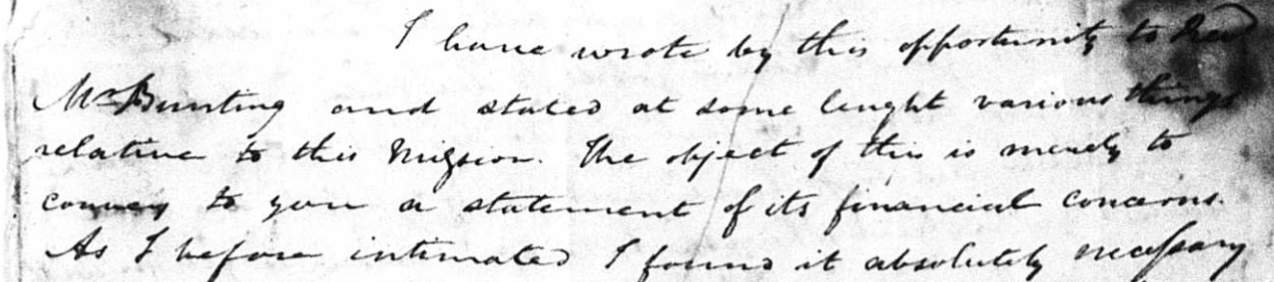 I have wrote by this opportunity to Revd
Mr Bunting and stated at some lenght various things
relative to this Mission. The object of this is merely to
convey to you a statement of its financial concerns.
As I before intimated I found it absolutely necessary